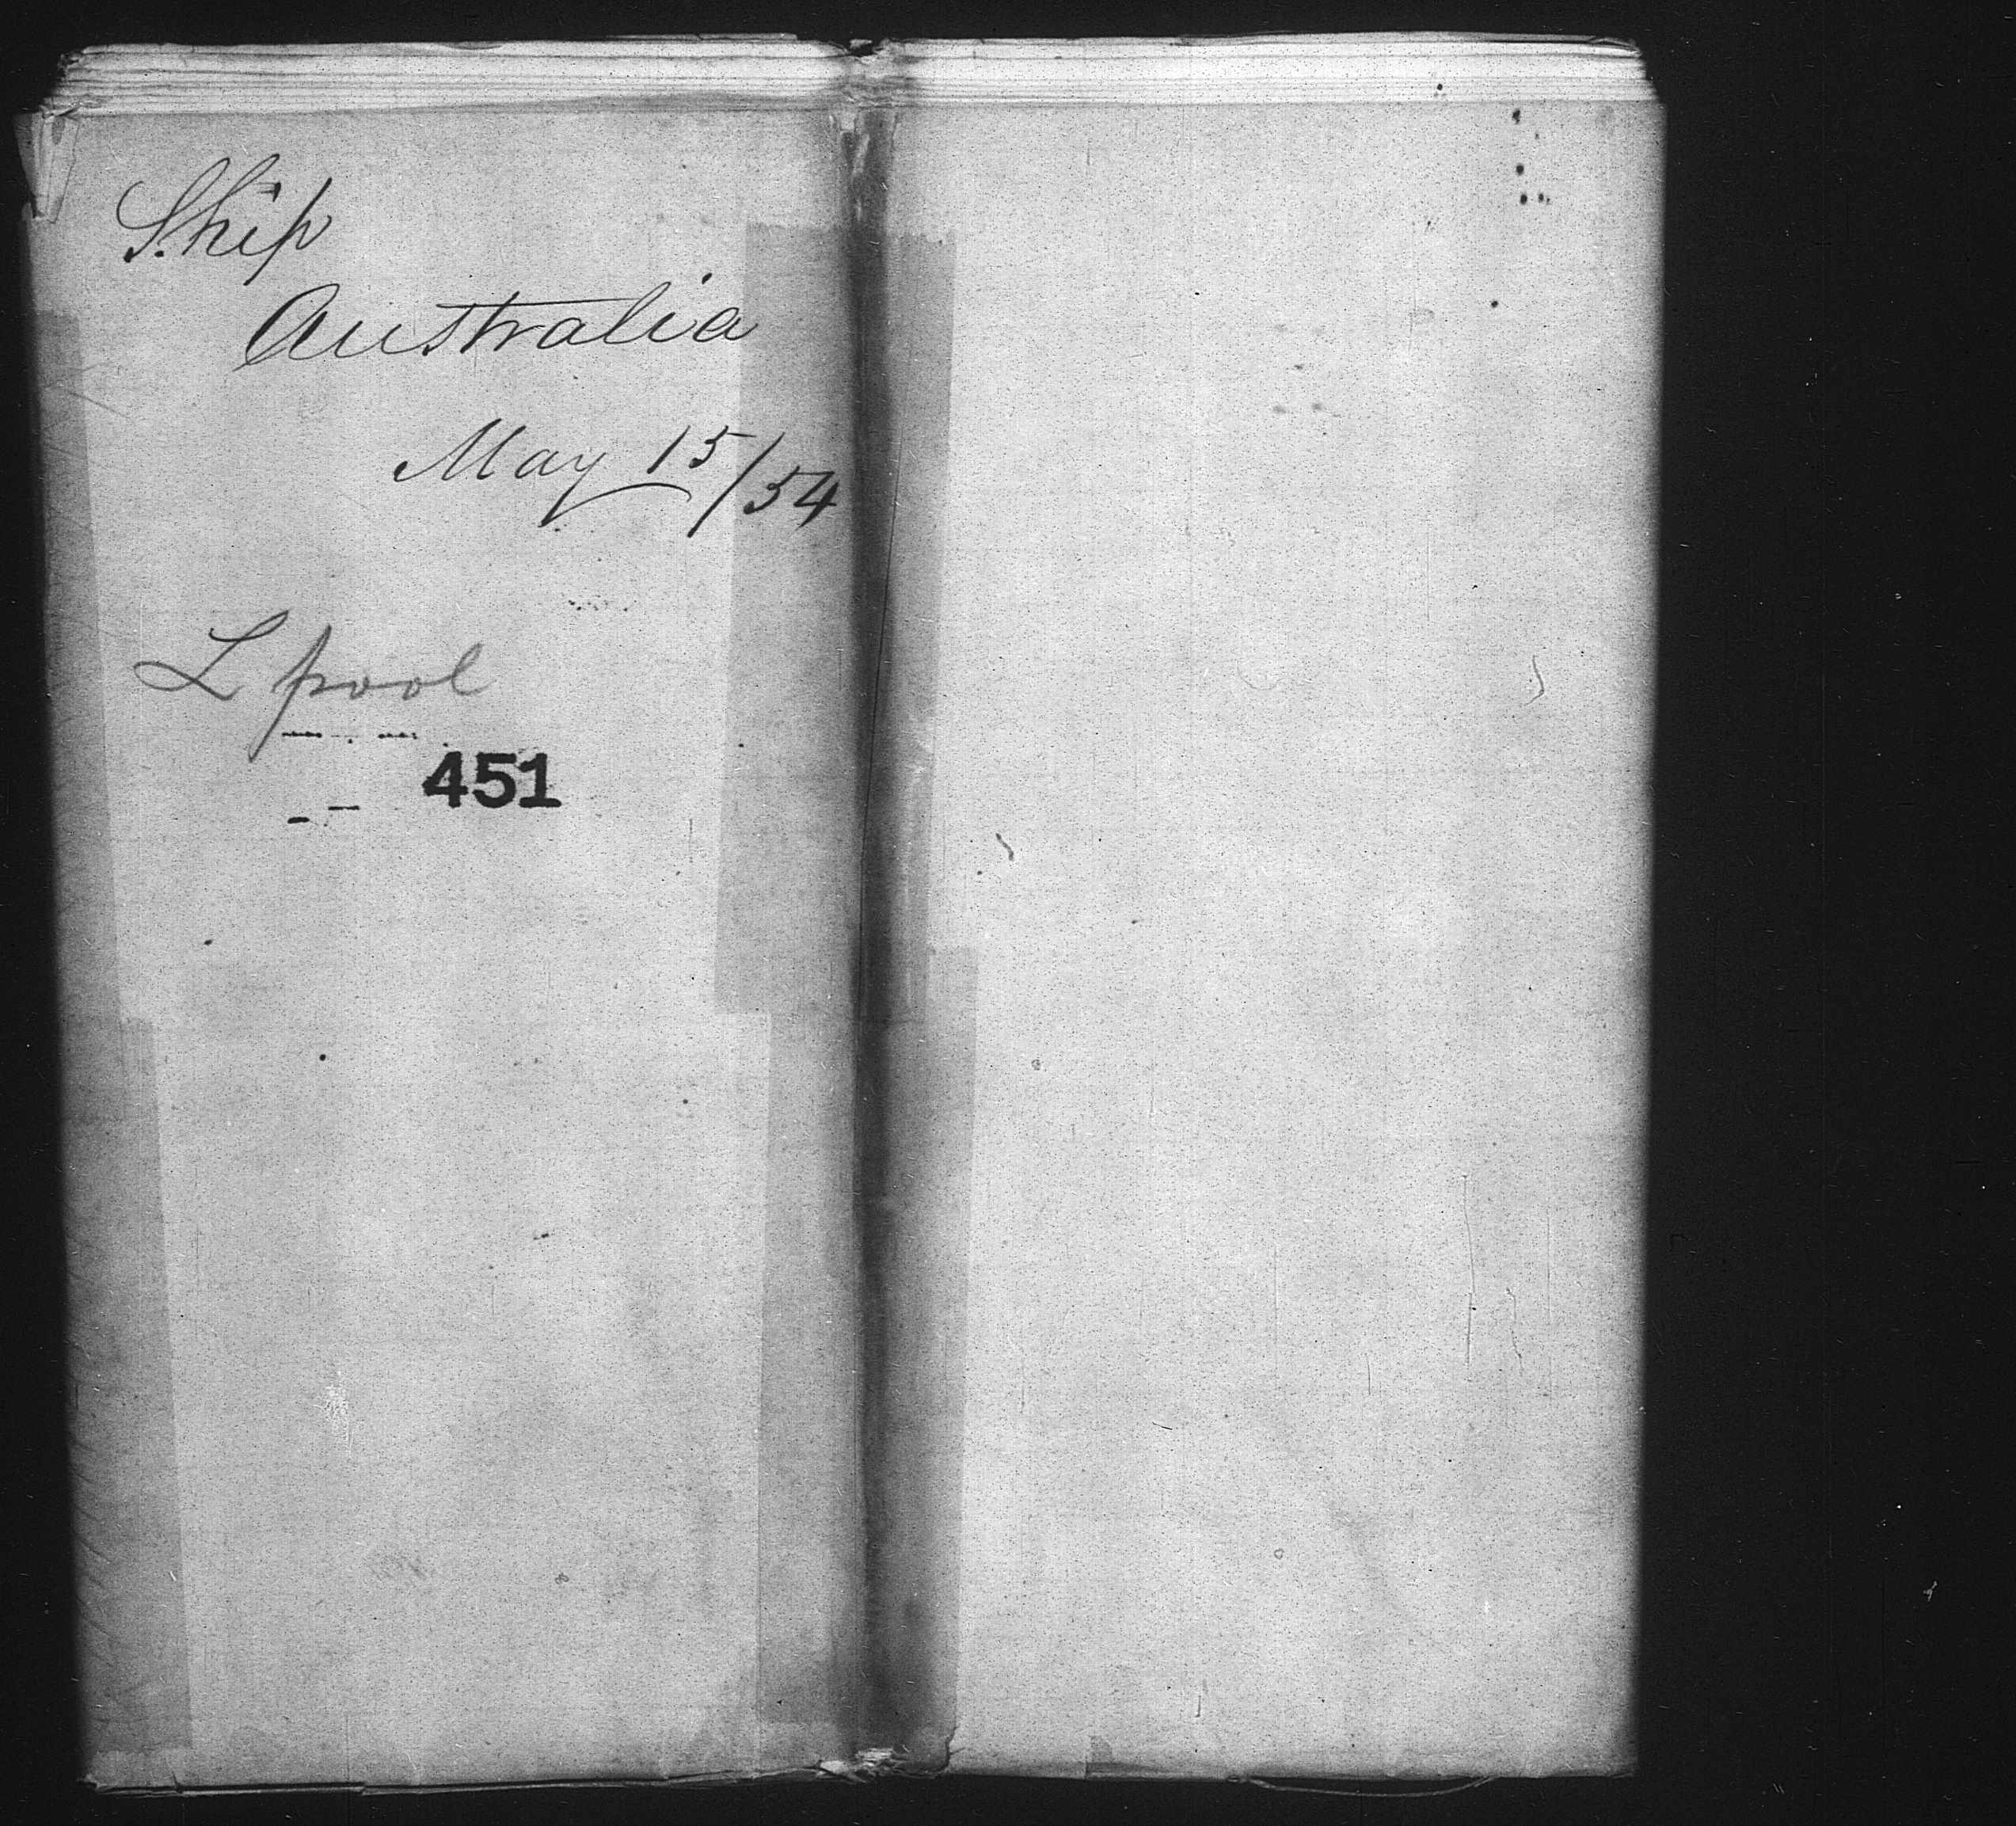 Ship
Australia
May 15/54
L pool
451